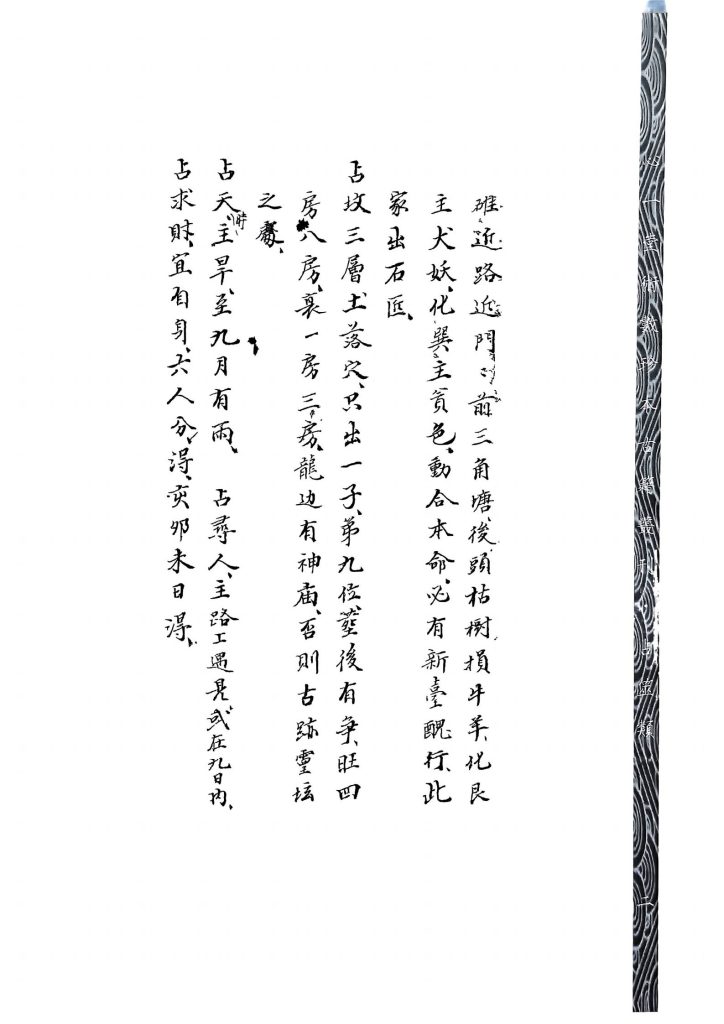 心一堂術數珍本古籍叢刊 占筮類 二
碓近路近門前三角塘後頭枯樹損牛羊化艮
主犬妖化巽主貪色動合本命必有新臺醜行此
家出石匠
占墳三層土落穴只出一子第九位葬後有爭旺四
房八房裏一房三房龍边有神庙否則古跡靈坛
之處
占天時主旱至九月有雨 占尋人主路上遇見或在九日內
占求財宜自身六人分得亥卯未日得